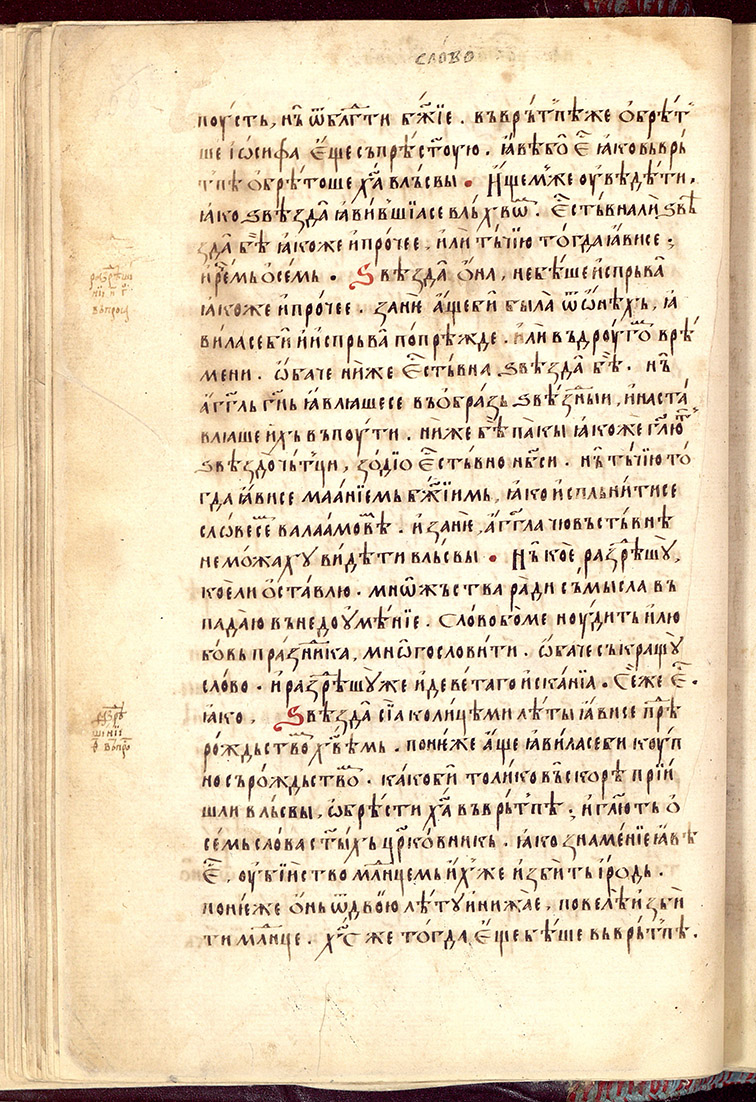 слово
поусть, нѝ ѿблг҇ти бж҇їе. въврът'пѣже ѻбрѣт'
ше іѡсифа є҆ще съпрѣст҃ою. ꙗвѣбо є҇ ꙗковьврь
т'пѣ ѻбрѣтоше ха҃ влъсвы. Ищем'же оувѣдѣти,
ꙗко ѕвѣзда ꙗвив'шїасе влъх'вѡ҇. Єстьвнали ѕвѣ
зда бѣ ꙗкоже ипрочее, или тьчїю тогда ꙗвисе.
ире҇мь ѻсемь. Ѕвѣзда ѻна, небѣше испрьва
ꙗкоже ипрочее. зане ащеби была ѿѡнѣхь, ꙗ
виласеби иисправа попрѣжде. или въдроугѡ҇ врѣ
мени. ѡбаче ниже єстьвна ѕвѣзда бѣ. нѝ
агг҃ль гн҃ь ꙗвлꙗшесе въобразь ѕвѣзⷣныи, инаста
влꙗше ихь въпоути. ниже бѣ пакы ꙗкоже гл҃ют'
ѕвѣздочьт'ци, зодїо єстьвно нб҃си. нѝ тьчїю то
гда ꙗвисе маанїемь бж҃їимь, ꙗко испльнитисе
словесе҇ валаамовѣ. изане, агг҃ла чювьствьнѣ
неможаху видѣти влъсвы. Нѝ кое, разрѣшꙋ,
коели ѡставлю. мнѡжьства ради съмысла въ
падаю въ недоумѣнїе. Слово бо ме ноудить илю
бовь праз҇ника, мнѡгословити. ѡбаче съкращꙋ
слово. иразⷬ҇ѣшꙋже идеветаго исканїа. Сеже є҇.
ꙗко, Ѕвѣзда сїа колицѣми лѣты ꙗвисе прѣ
рождьствѡ҇ хв҃ѣмь. понеже аще ꙗвиласеби коуп
но съ рождьствѡ҇. какоби толико въскорѣ прїи
шли влъсвы, ѡбрѣсти ха҃ въврьт'пѣ. и гл҃ють ѻ
семь слова ст҃ыхъ цр҃ковникь. ꙗко знаменїе ꙗвѣ
є҇, оубїиство мл҃нцемь ихже изби ть іродь.
понеже онь ѿдвою лѣту инижае, повелѣ изби
ти мл҃нце. хс҃ же тогда, є҆ще бѣше вьврьт'пѣ.